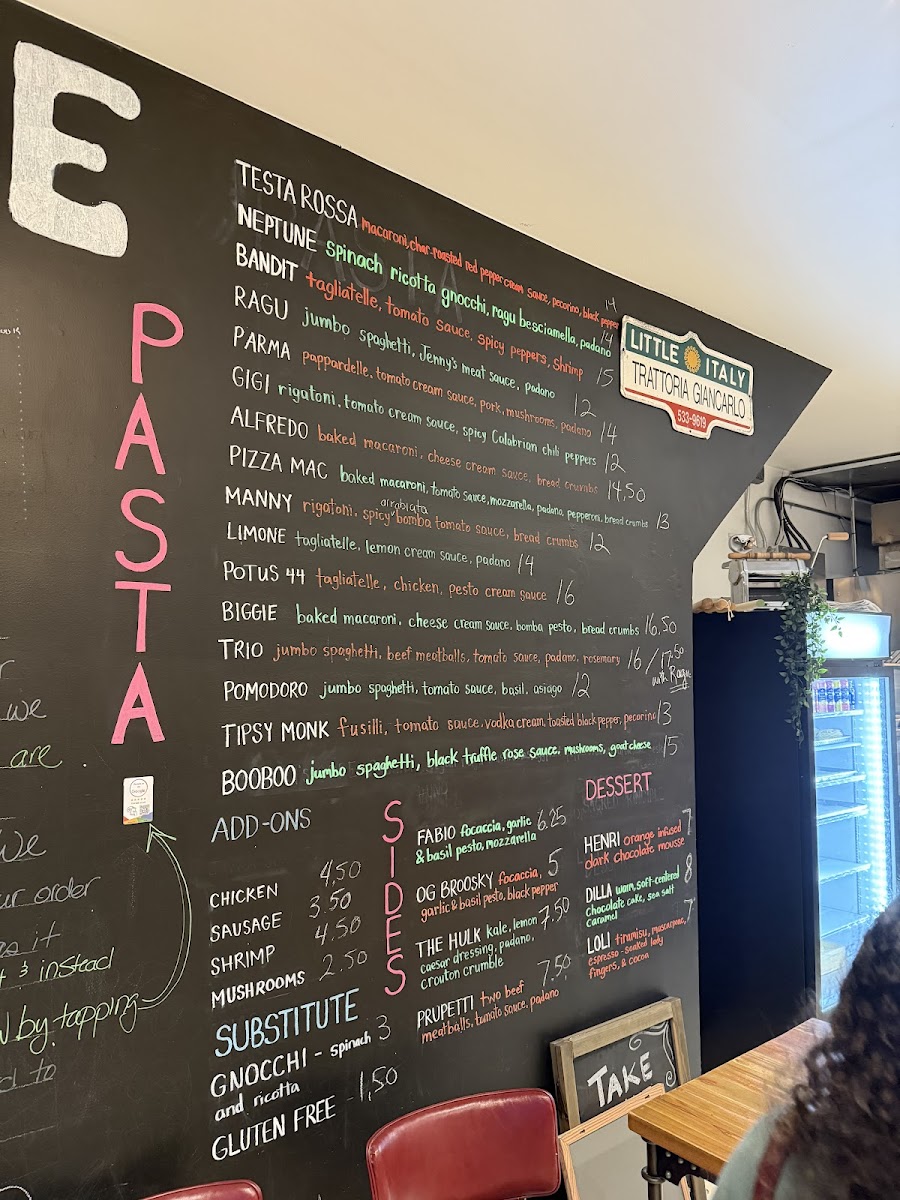 E
PASTA
TESTA ROSSA macaroni, char-roasted red pepper cream sauce, pecorino, black pepper 14
NEPTUNE spinach ricotta gnocchi, ragu besciamella, padano 14
BANDIT tagliatelle, tomato sauce, spicy peppers, shrimp 15
RAGU jumbo spaghetti, Jenny's meat sauce, padano 12
PARMA pappardelle, tomato cream sauce, pork, mushrooms, padano 14
GIGI rigatoni, tomato cream sauce, spicy Calabrian chili peppers 12
ALFREDO baked macaroni, cheese cream sauce, bread crumbs 14,50
PIZZA MAC baked macaroni, tomato sauce, mozzarella, padano, pepperoni, bread crumbs 13
arrabiata
MANNY rigatoni, spicy bomba tomato sauce, bread crumbs 12
LIMONE tagliatelle, lemon cream sauce, padano 14
POTUS 44 tagliatelle, chicken, pesto cream sauce 16
BIGGIE baked macaroni, cheese cream sauce, bomba pesto, bread crumbs 16,50
TRIO jumbo spaghetti, beef meatballs, tomato sauce, padano, rosemary 16 / 17.50
with Ragu
POMODORO jumbo spaghetti, tomato sauce, basil, asiago 12
TIPSY MONK fusilli, tomato sauce, vodka cream, toasted black pepper, pecorino 13
BOOBOO jumbo spaghetti, black truffle rose sauce, mushrooms, goat cheese 15
LITTLE ITALY
TRATTORIA GIANCARLO
533-9619
ADD-ONS
CHICKEN 4,50
SAUSAGE 3.50
SHRIMP 4.50
MUSHROOMS 2.50
SUBSTITUTE
GNOCCHI - spinach 3
and ricotta
GLUTEN FREE 1,50
SIDES
FABIO focaccia, garlic 6.25
& basil pesto, mozzarella
OG BROOSKY focaccia, 5
garlic & basil pesto, black pepper
THE HULK kale, lemon 7.50
caesar dressing, padano,
crouton crumble
PRUPETTI two beef 7.50
meatballs, tomato sauce, padano
DESSERT
HENRI orange infused 7
dark chocolate mousse
DILLA warm, soft-centered 8
chocolate cake, sea salt
caramel
LOLI tiramisu, mascarpone, 7
espresso-soaked lady
fingers, & cocoa
we
are
we
ur order
as it
t & instead
w by tapping
d to
TAKE